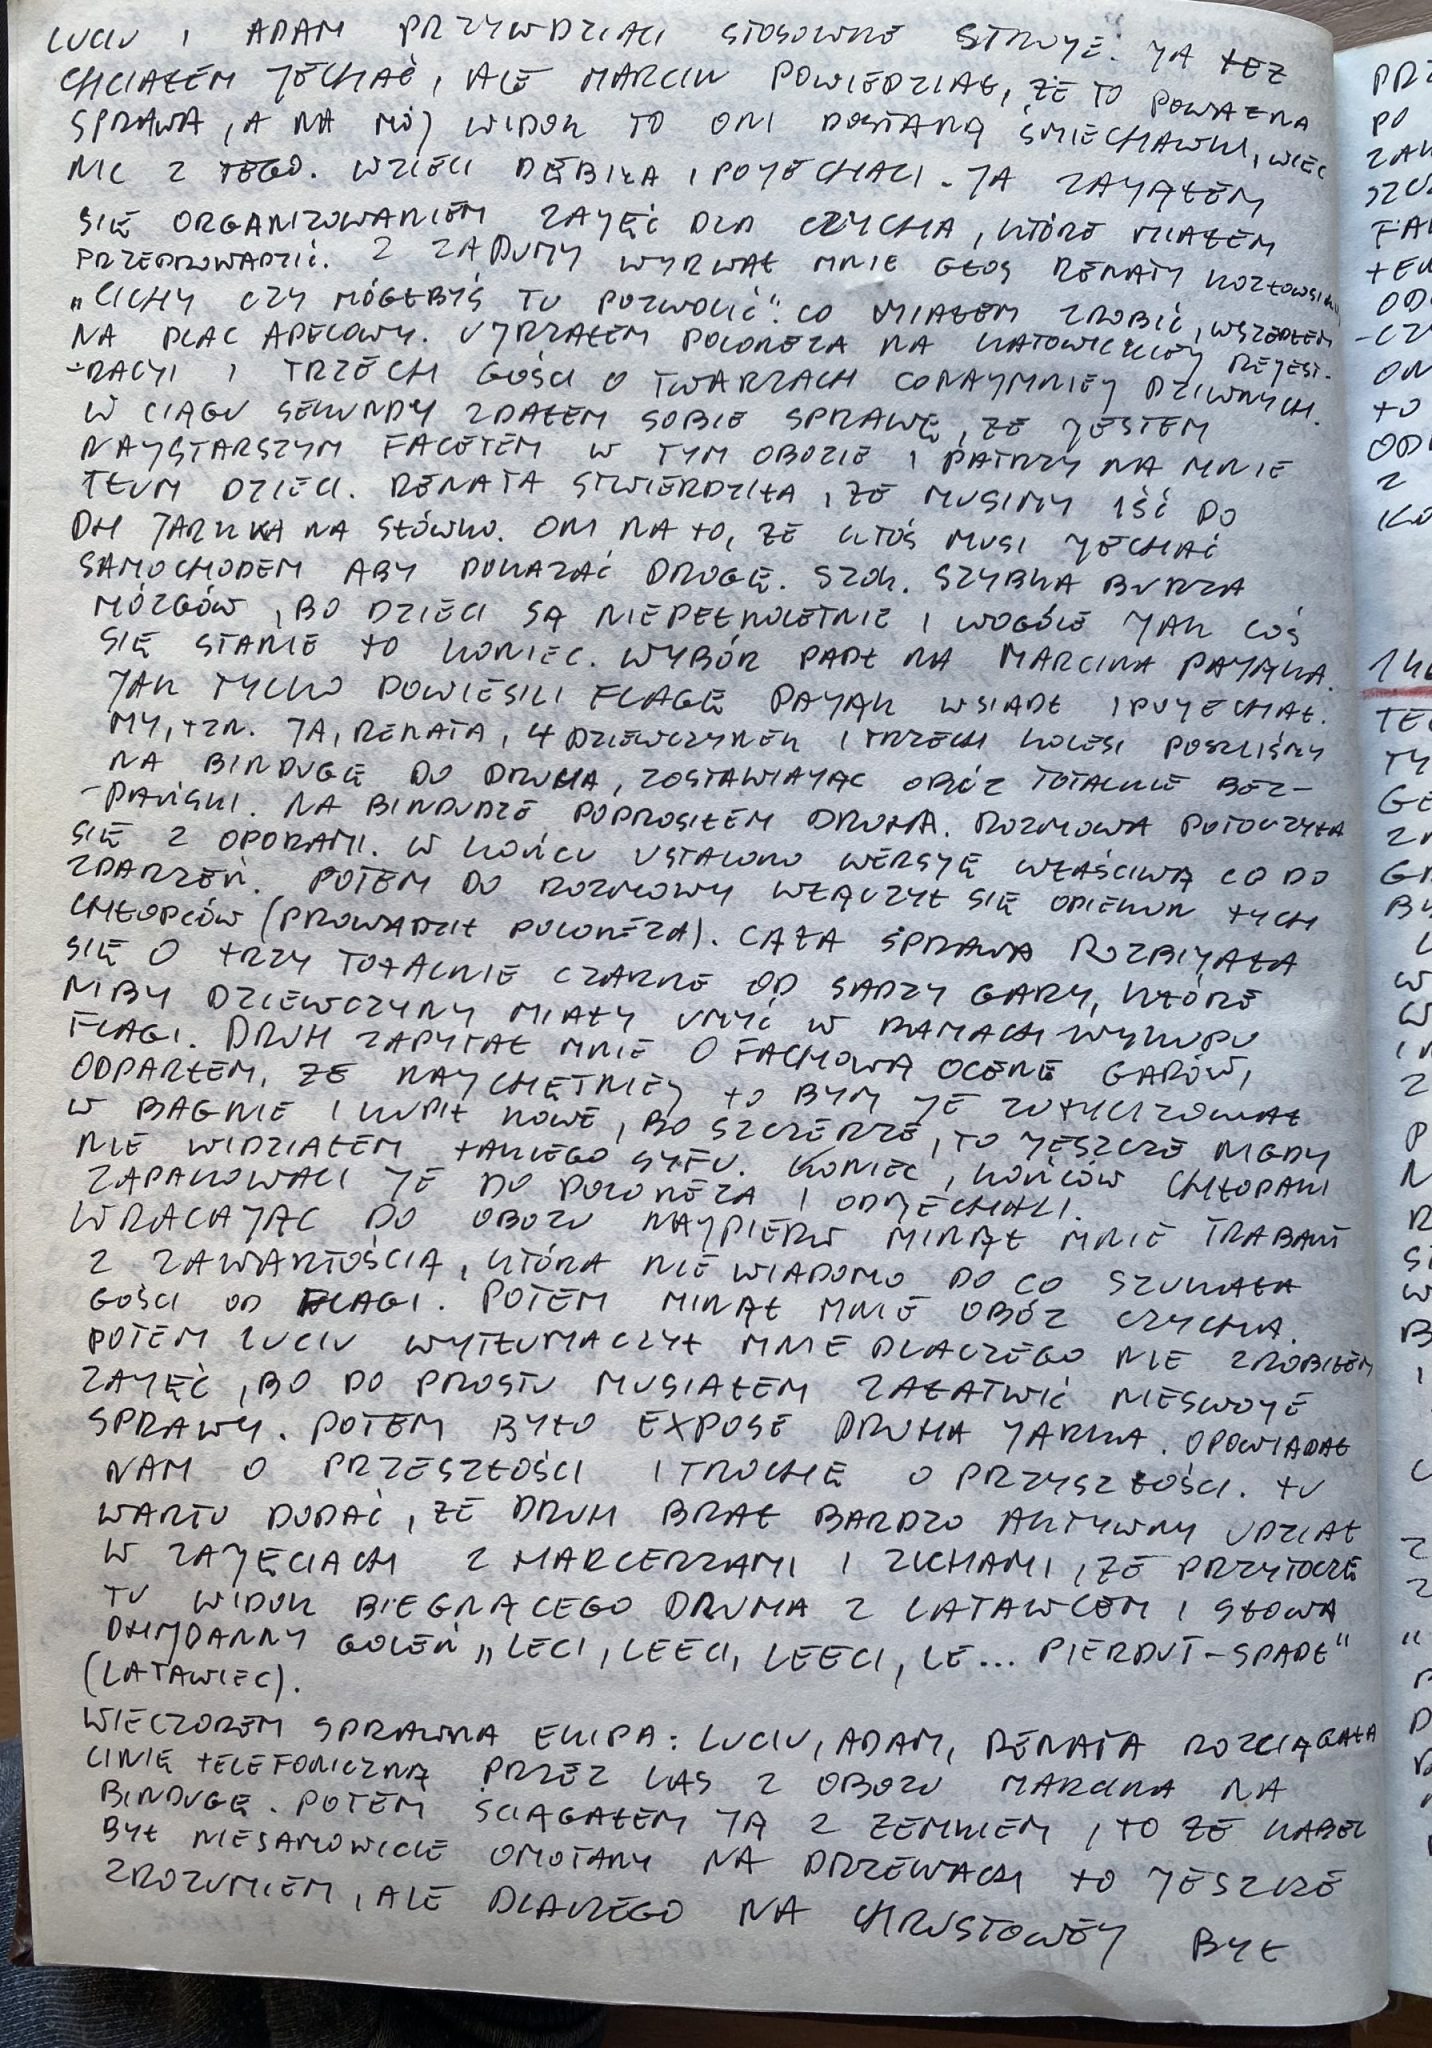 LUCIU I ADAM PRZYWDZIALI STOSOWNE STROJE. JA TEŻ
CHCIAŁEM JECHAĆ, ALE MARCIN POWIEDZIAŁ, ŻE TO POWAŻNA
SPRAWA, A NA MÓJ WIDOK TO ONI DOSTANĄ ŚMIECHAWKI, WIĘC
NIC Z TEGO. WZIELI DEBILA I POJECHALI. JA ZAJĄŁEM
SIĘ ORGANIZOWANIEM ZAJĘĆ DLA CZYCHA, KTÓRE MIAŁEM
PRZEPROWADZIĆ. Z ZADUMY WYRWAŁ MNIE GŁOS RENATY KOZŁOWSKIEJ
„CICHY CZY MÓGŁBYŚ TU POZWOLIĆ". CO MIAŁEM ZROBIĆ, WSZEDŁEM
NA PLAC APELOWY. UJRZAŁEM POLONEZA NA KATOWICKIEJ REJEST-
-RACJI I TRZECH GOŚCI O TWARZACH CONAJMNIEJ DZIWNYCH.
W CIĄGU SEKUNDY ZDAŁEM SOBIE SPRAWĘ, ŻE JESTEM
NAJSTARSZYM FACETEM W TYM OBOZIE I PATRZY NA MNIE
TŁUM DZIECI. RENATA STWIERDZIŁA, ŻE MUSIMY IŚĆ DO
DH JARKA NA SŁÓWKO. ONI NA TO, ŻE KTOŚ MUSI JECHAĆ
SAMOCHODEM ABY POKAZAĆ DROGĘ. SZOK. SZYBKA BURZA
MÓZGÓW, BO DZIECI SĄ NIEPEŁNOLETNIE I WOGÓLE JAK COŚ
SIĘ STANIE TO KONIEC. WYBÓR PADŁ NA MARCINA PAJĄKA.
JAK TYLKO POWIESILI FLAGĘ PAJĄK WSIADŁ I POJECHAŁ.
MY, TZN. JA, RENATA, 4 DZIEWCZYNEK I TRZECH KOLESI POSZLIŚMY
NA BINDUGĘ DO DRUHA, ZOSTAWIAJĄC OBÓZ TOTALNIE BEZ-
-PAŃSKI. NA BINDUDZE POPROSIŁEM DRUHA. ROZMOWA POTOCZYŁA
SIĘ Z OPORAMI. W KOŃCU USTALONO WERSJĘ WŁAŚCIWĄ CO DO
ZDARZEŃ. POTEM DO ROZMOWY WŁĄCZYŁ SIĘ OPIEKUN TYCH
CHŁOPCÓW (PROWADZIŁ POLONEZA). CAŁA SPRAWA ROZBIJAŁA
SIĘ O TRZY TOTALNIE CZARNE OD SADZY GARY, KTÓRE
NIBY DZIEWCZYNY MIAŁY UMYĆ W RAMACH WYKUPU
FLAGI. DRUH ZAPYTAŁ MNIE O FACHOWĄ OCENĘ GARÓW,
ODPARŁEM, ŻE NAJCHĘTNIEJ TO BYM JE ZUTYLIZOWAŁ
W BAGNIE I KUPIŁ NOWE, BO SZCZERZE, TO JESZCZE NIGDY
NIE WIDZIAŁEM TAKIEGO SYFU. KONIEC, KOŃCÓW CHŁOPAKI
ZAPAKOWALI JE DO POLONEZA I ODJECHALI.
WRACAJĄC DO OBOZU NAJPIERW MINĄŁ MNIE TRABANT
Z ZAWARTOŚCIĄ, KTÓRA NIE WIADOMO PO CO SZUKAŁA
GOŚCI OD FLAGI. POTEM MINĄŁ MNIE OBÓZ CZYCHA.
POTEM LUCIU WYTŁUMACZYŁ MNIE DLACZEGO NIE ZROBIŁEM
ZAJĘĆ, BO PO PROSTU MUSIAŁEM ZAŁATWIĆ NIESWOJE
SPRAWY. POTEM BYŁO EXPOSE DRUHA JARKA. OPOWIADAŁ
NAM O PRZESZŁOŚCI I TROCHĘ O PRZYSZŁOŚCI. TU
WARTO DODAĆ, ŻE DRUH BRAŁ BARDZO AKTYWNY UDZIAŁ
W ZAJĘCIACH Z HARCERZAMI I ZUCHAMI, ŻE PRZYTOCZĘ
TU WIDOK BIEGNĄCEGO DRUHA Z LATAWCEM I SŁOWA
DH JOANNY GOLEŃ „LECI, LEECI, LEECI, LE... PIERDUT-SPADŁ"
(LATAWIEC).
WIECZOREM SPRAWNA EKIPA: LUCIU, ADAM, RENATA ROZCIĄGAŁA
LINIĘ TELEFONICZNĄ PRZEZ LAS Z OBOZU MARCINA NA
BINDUGĘ. POTEM ŚCIĄGAŁEM JĄ Z ZEMKIEM, TO ŻE KABEL
BYŁ NIESAMOWICIE OMOTANY NA DRZEWACH TO JESZCZE
ZROZUMIEM, ALE DLACZEGO NA CHRUSTOWEJ BYŁ